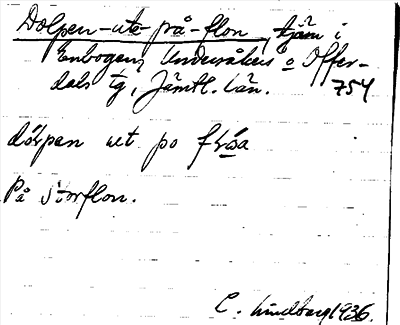 Dolpen-ute-på-flon, tjärn i
Enbogen, Undersåkers o Offer-
dals tg, Jämtl. län. 754
dórpen ut po fróa
På storflon.
C. Lindberg 1936.